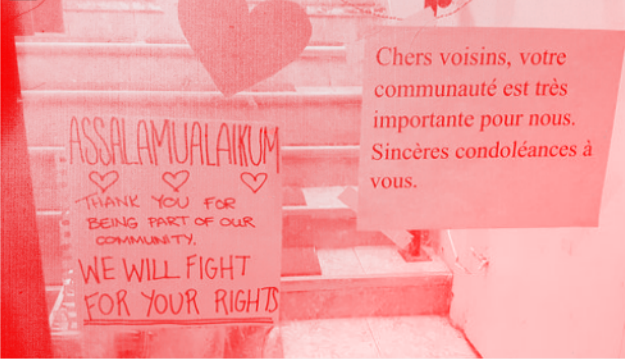 ASSALAMUALAIKUM
THANK YOU FOR
BEING PART OF OUR
COMMUNITY.
WE WILL FIGHT
FOR YOUR RIGHTS
Chers voisins, votre
communauté est très
importante pour nous.
Sincères condoléances à
vous.